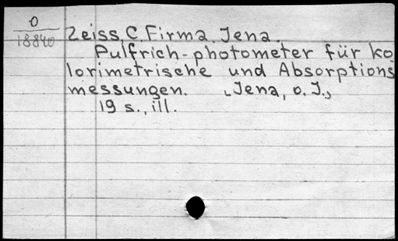 0
18840
Zeiss, C. Firma. Jena.
Pulfrich-photometer für ko
lorimetrische und Absorptions
messungen. [Jena, o. J.,]
19 s., ill.